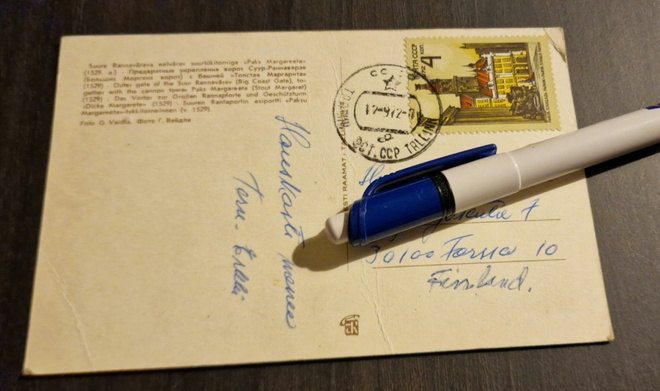 Suure Rannavärava eelvärav suurtükitorniga «Paks Margareeta»
(1529. a.) · Предвратные укрепления ворот Суур-Раннавярав
(Больших Морских ворот) с башней «Толстая Маргарита»
(1529) · Outer gate of the Suur Rannavärav (Big Coast Gate), to-
gether with the cannon tower Paks Margareeta (Stout Margaret)
(1529) · Das Vortor zur Großen Rannapforte und Geschützturm
«Dicke Margarete» (1529) · Suuren Rantaportin esiportti «Paksu
Margareeta»-tykkitorneineen (v. 1529).
Foto G. Vaidla Фото Г. Вайдла
Hauskasti menee
EESTI RAAMAT
ПОЧТА СССР
4
коп.
TALLINN
ЭСТ. ССР
7
30100 Forssa 10
Finnland.